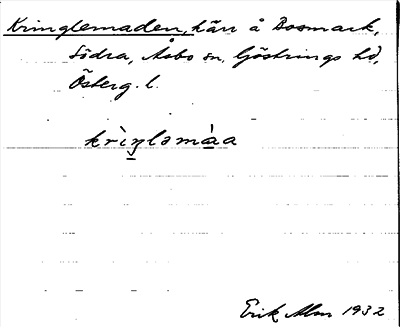 Kringlemaden, kärr å Bosmark,
Södra, Åsbo sn, Göstrings hd,
Österg. l.
krìŋləmàa
Erik Alm 1932